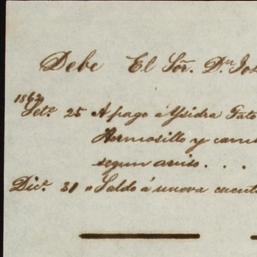 Debe El Sõr. Dⁿ Jos
1862
Set.ᵉ 25 A pago á Ysidra Gato
Hermosillo y cam
segun aviso . . .
Dic.ᵉ 31 " Saldo á nueva cuenta